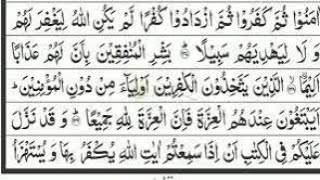 اٰمَنُوۡا ثُمَّ كَفَرُوۡا ثُمَّ ازۡدَادُوۡا كُفۡرًا لَّمۡ يَكُنِ اللّٰهُ لِيَغۡفِرَ لَهُمۡ
وَ لَا لِيَهۡدِيَهُمۡ سَبِيۡلًا ؕ بَشِّرِ الۡمُنٰفِقِيۡنَ بِاَنَّ لَهُمۡ عَذَابًا
اَلِيۡمًا ۙ الَّذِيۡنَ يَتَّخِذُوۡنَ الۡكٰفِرِيۡنَ اَوۡلِيَآءَ مِنۡ دُوۡنِ الۡمُؤۡمِنِيۡنَ ؕ
اَيَبۡتَغُوۡنَ عِنۡدَهُمُ الۡعِزَّةَ فَاِنَّ الۡعِزَّةَ لِلّٰهِ جَمِيۡعًا ؕ وَ قَدۡ نَزَّلَ
عَلَيۡكُمۡ فِى الۡكِتٰبِ اَنۡ اِذَا سَمِعۡتُمۡ اٰيٰتِ اللّٰهِ يُكۡفَرُ بِهَا وَ يُسۡتَهۡزَاُ